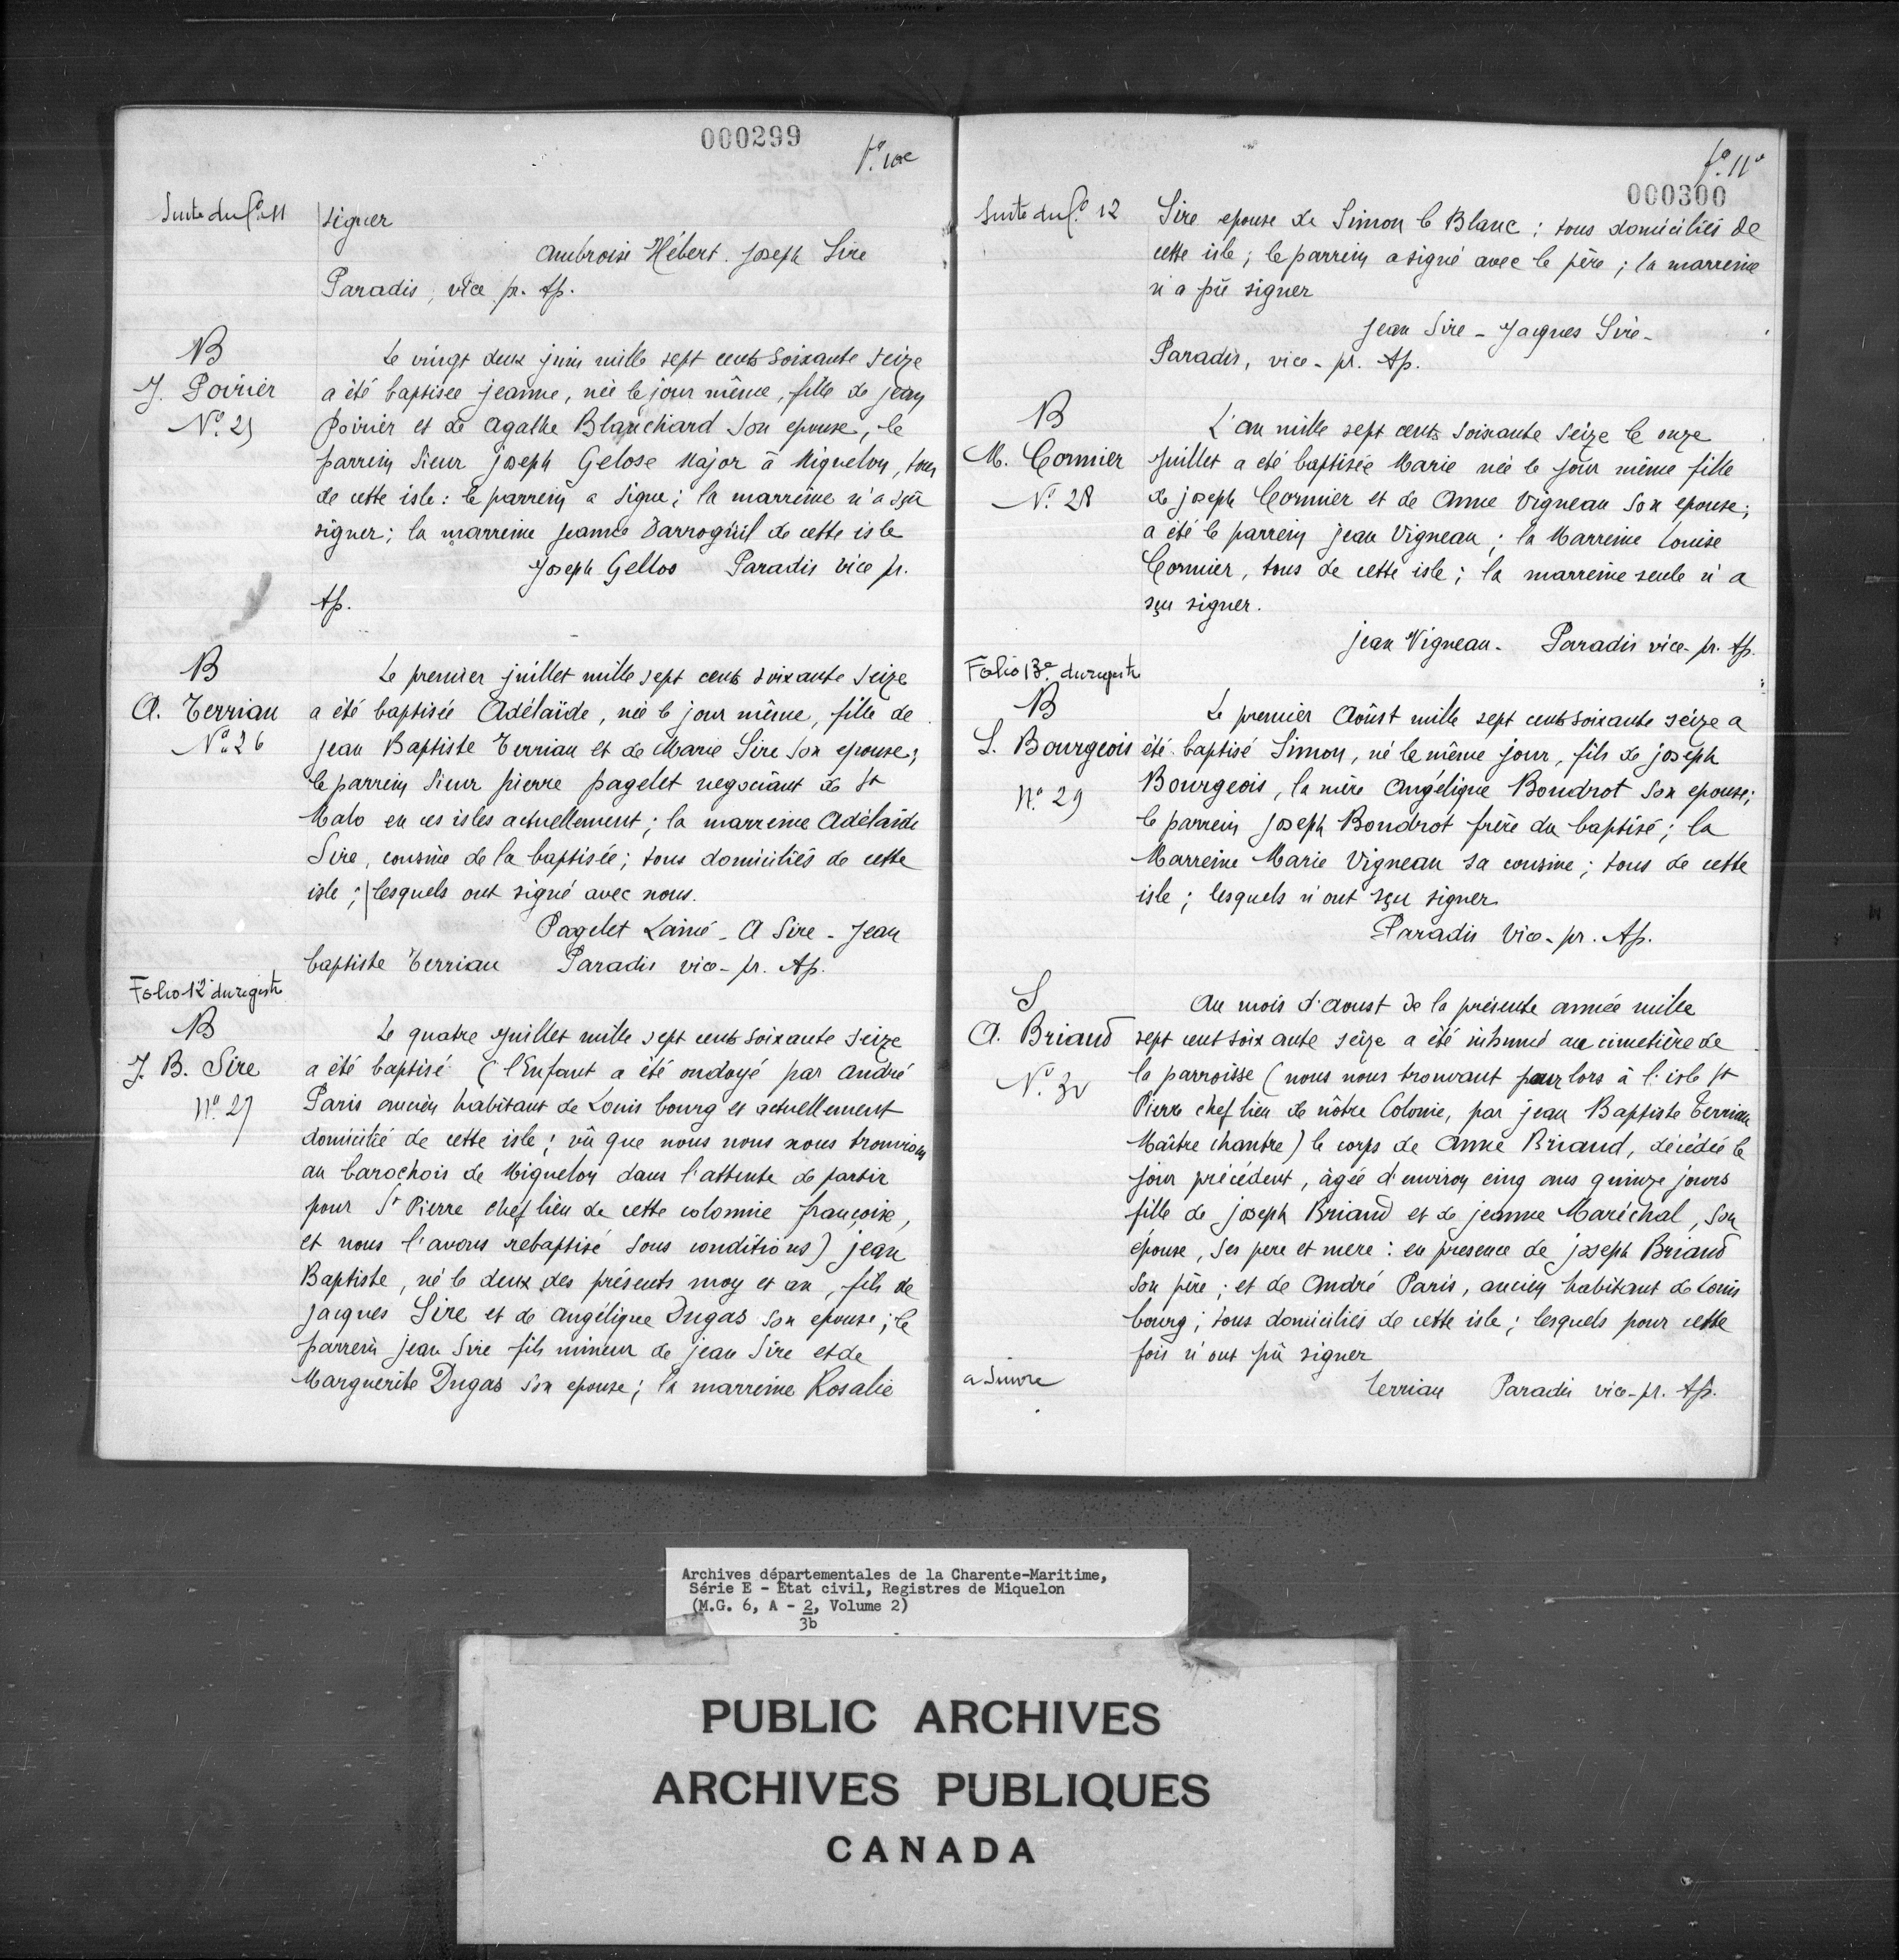 000299
f.º 10e
Suite du f.º 11
signer
Ambroise Hébert. Joseph Sire
Paradis, vice pr. Ap.
B
J. Poirier
Nº. 25
Le vingt deux juin mille sept cents soixante seize
a été baptisée jeanne, née le jour même, fille de jean
poirier et de agathe Blanchard son epouse, le
parrein Sieur joseph Gelose Major à Miquelon, tous
de cette isle: le parrein a signé; la marreine n'a sçû
signer; la marreine jeanne Darroguil de cette isle
Joseph Gellos Paradis vice pr.
Ap.
B
A. Terriau
Nº 26
Le premier juillet mille sept cents soixante seize
a été baptisée Adélaïde, née le jour même, fille de
jean Baptiste Terriau et de Marie Sire son epouse;
le parrein Sieur pierre pagelet negociant de St
Malo en ces isles actuellement; la marreine Adélaïde
Sire, cousine de la baptisée; tous domiciliés de cette
isle; lesquels ont signé avec nous.
Pagelet Lainé - A Sire - Jean
baptiste Terriau Paradis vice-pr. Ap.
Folio 12e du registre
B
J. B. Sire
Nº 27
Le quatre juillet mille sept cents soixante seize
a été baptisé (l'Enfant a été ondoyé par andré
Paris ancien habitant de Louis bourg et actuellement
domicilié de cette isle; vû que nous nous nous trouvions
au barochois de Miquelon dans l'attente de partir
pour St Pierre chef lieu de cette colonnie françoise,
et nous l'avons rebaptisé sous conditions) jean
Baptiste, né le deux des présents moy et an, fils de
jacques Sire et de angélique Dugas son epouse; le
parrein jean Sire fils mineur de jean Sire et de
Marguerite Dugas son epouse; la marreine Rosalie
f.º 11e
000300
Suite du f.º 12
Sire epouse de Simon le Blanc; tous domiciliés de
cette isle; le parrein a signé avec le père; la marreine
n'a pû signer
Jean Sire - Jacques Sire -
Paradis, vice-pr. Ap.
B
M. Cormier
Nº. 28
L'an mille sept cents soixante seize le onze
juillet a eté baptisée Marie née le jour même fille
de joseph Cormier et de Anne Vigneau son epouse;
a été le parrein jean Vigneau; la Marreine Louise
Cormier, tous de cette isle; la marreine seule n'a
sçu signer.
jean Vigneau - Paradis vice-pr. Ap.
Folio 13e du registre
B
S. Bourgeois
Nº 29
Le premier Aoûst mille sept cents soixante seize a
été baptisé Simon, né le même jour, fils de joseph
Bourgeois, la mère Angélique Boudrot son epouse;
le parrein joseph Boudrot frère du baptisé; la
Marreine Marie Vigneau sa cousine; tous de cette
isle; lesquels n'ont sçu signer
Paradis Vice-pr. Ap.
S
A. Briand
Nº. 30
Au mois d'aoust de la présente année mille
sept cent soixante seize a été inhumé au cimetière de
la parroisse (nous nous trouvant pour lors à l'isle St
Pierre chef lieu de nôtre Colonie, par jean Baptiste Terriau
Maître chantre) le corps de Anne Briand, décédée le
jour précédent, âgée d'environ cinq ans quinze jours
fille de joseph Briand et de jeanne Maréchal, son
épouse, ses pere et mere: en presence de joseph Briand
son père; et de André Paris, ancien habitant de Louis
bourg; tous domiciliés de cette isle; lesquels pour cette
fois n'ont pû signer
Terriau Paradis vice-pr. Ap.
a suivre
Archives départementales de la Charente-Maritime,
Série E - Etat civil, Registres de Miquelon
(M.G. 6, A - 2, Volume 2)
3b
PUBLIC ARCHIVES
ARCHIVES PUBLIQUES
CANADA